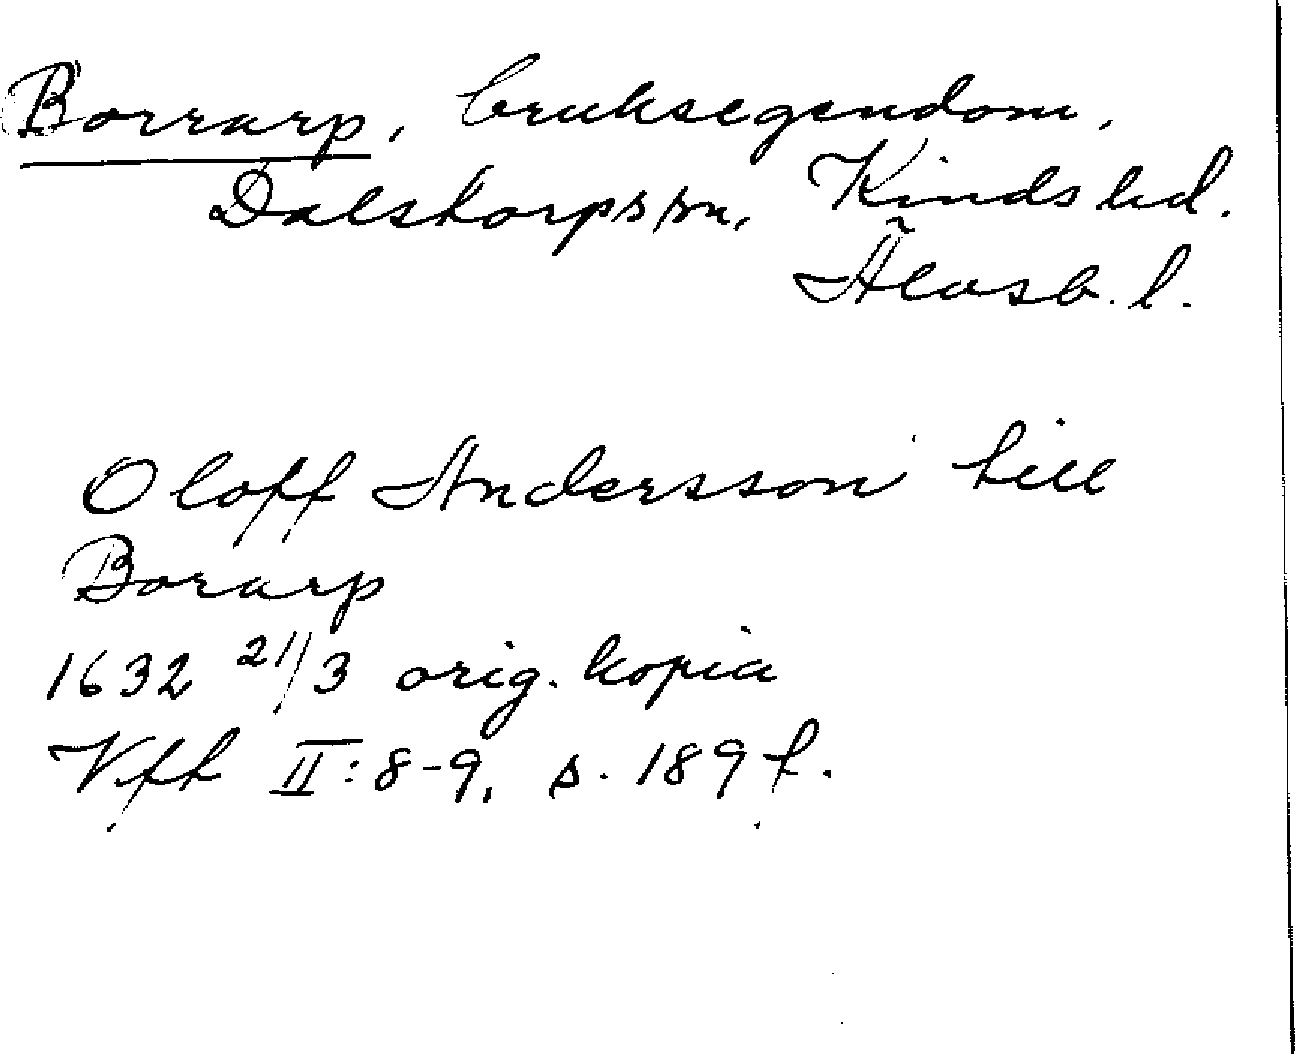 Borrarp, bruksegendom,
Dalstorps sn, Kinds hd.
Älvsb. l.
Oloff Andersson till
Borarp
1632 21/3 orig. kopia
Vff II: 8-9, s. 189 f.